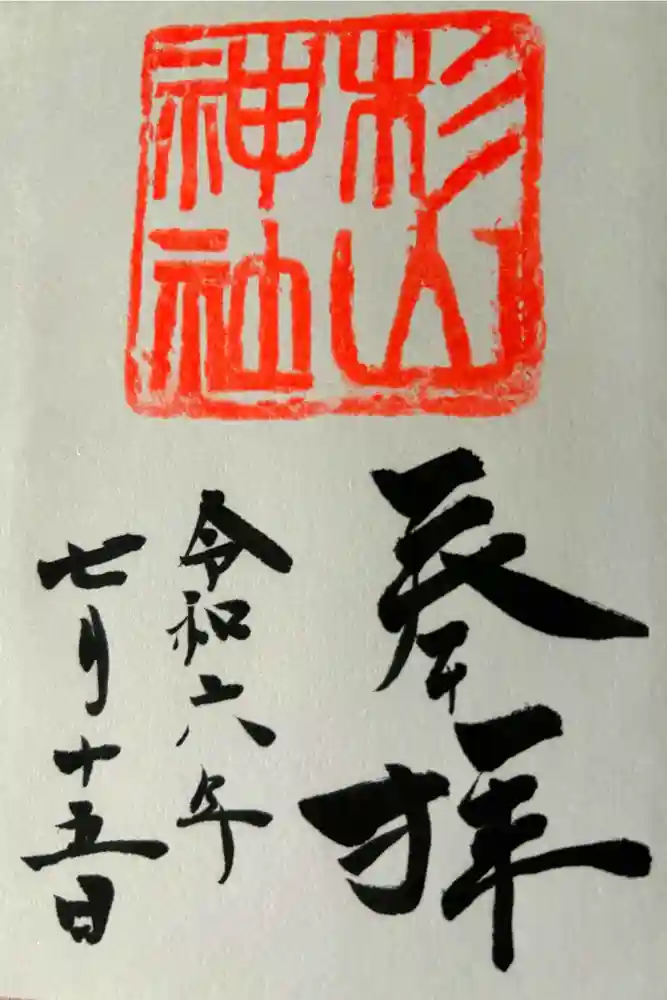 杉山
神社
奉拝
令和六年
七月十五日